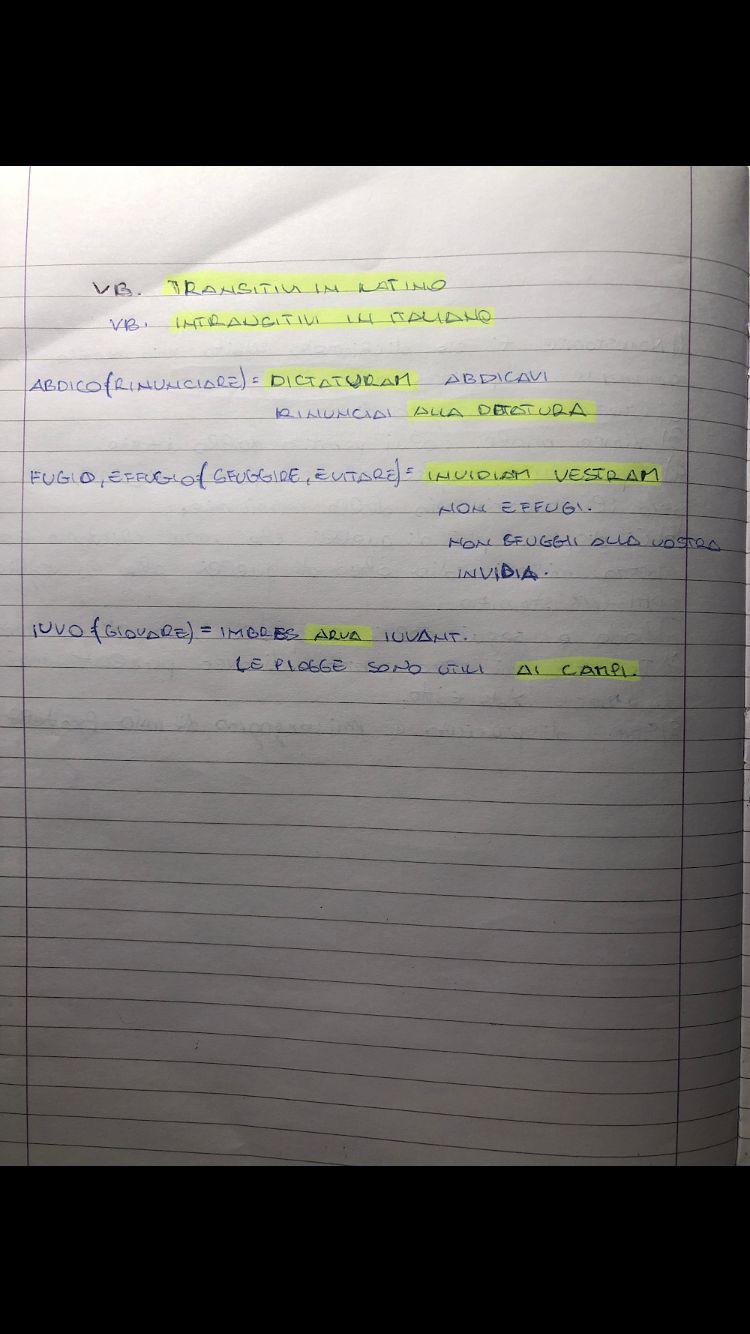 VB. TRANSITIVI IN LATINO
VB. INTRANSITIVI IN ITALIANO
ABDICO (RINUNCIARE) = DICTATURAM ABDICAVI
RINUNCIAI ALLA DETATURA
FUGIO, EFFUGIO (SFUGGIRE, EVITARE) = INVIDIAM VESTRAM
NON EFFUGI.
NON SFUGGII ALLA VOSTRA
INVIDIA.
IUVO (GIOVARE) = IMBRES ARVA IUVANT.
LE PIOGGE SONO UTILI AI CAMPI.